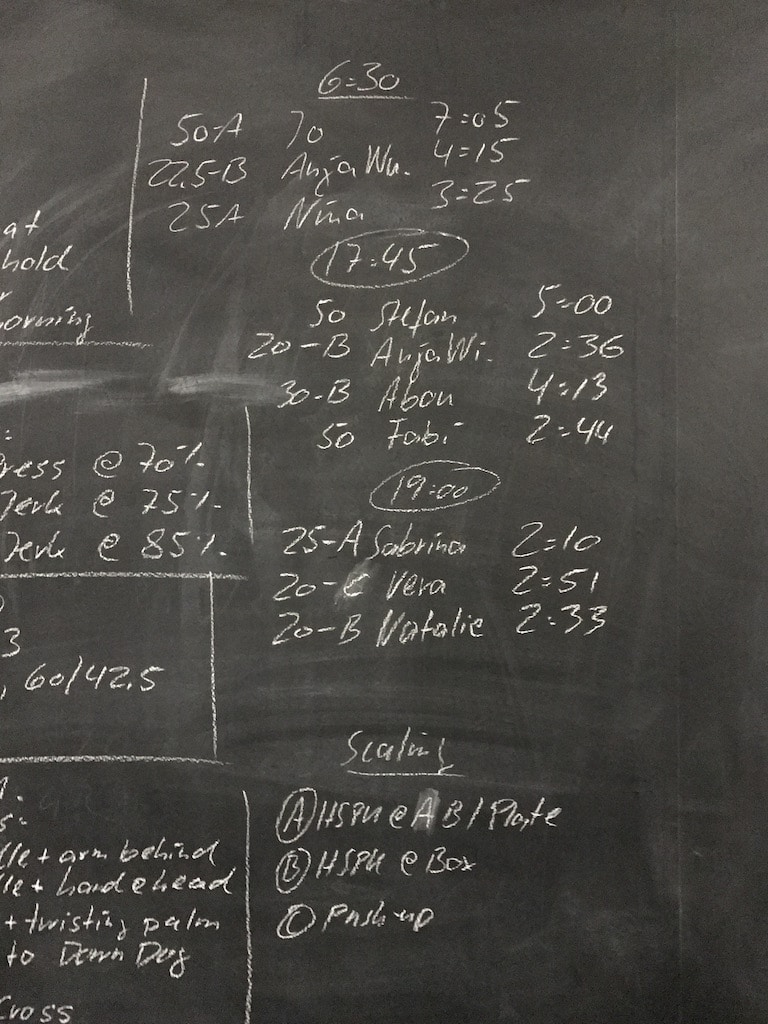 6:30
50-A Jo 7:05
22,5-B Anja Wu. 4:15
25A Nina 3:25
17:45
50 Stefan 5:00
20-B Anja Wi. 2:36
30-B Aban 4:13
50 Fabi 2:44
19:00
25-A Sabrina 2:10
20-C Vera 2:51
20-B Natalie 2:33
Scaling
A HSPU @ AB/Plate
B HSPU @ Box
C Push-up
at
hold
orning
ress @ 70%
Jerk @ 75%
Jerk @ 85%
3
, 60/42.5
s:
lle + arm behind
lle + hand @ head
+ twisting palm
to Down Dog
Cross